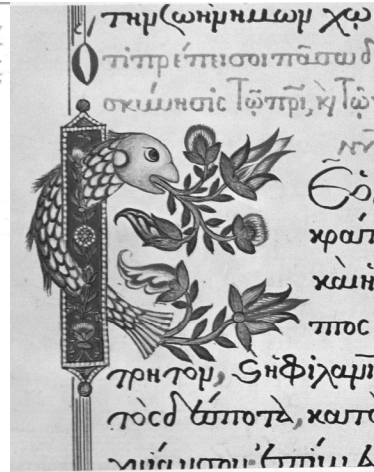 τὴν ζωὴν ἡμῶν χῶ
Ὅτι πρέπει σοι πᾶσα δ
σκύνησις Τῶ πρὶ, κὶ Τῶ
κρατ
καὶ ἡ
πτος
τρητον, ϗ ἡ φιλαν
τὸς δέσποτα, κατὰ